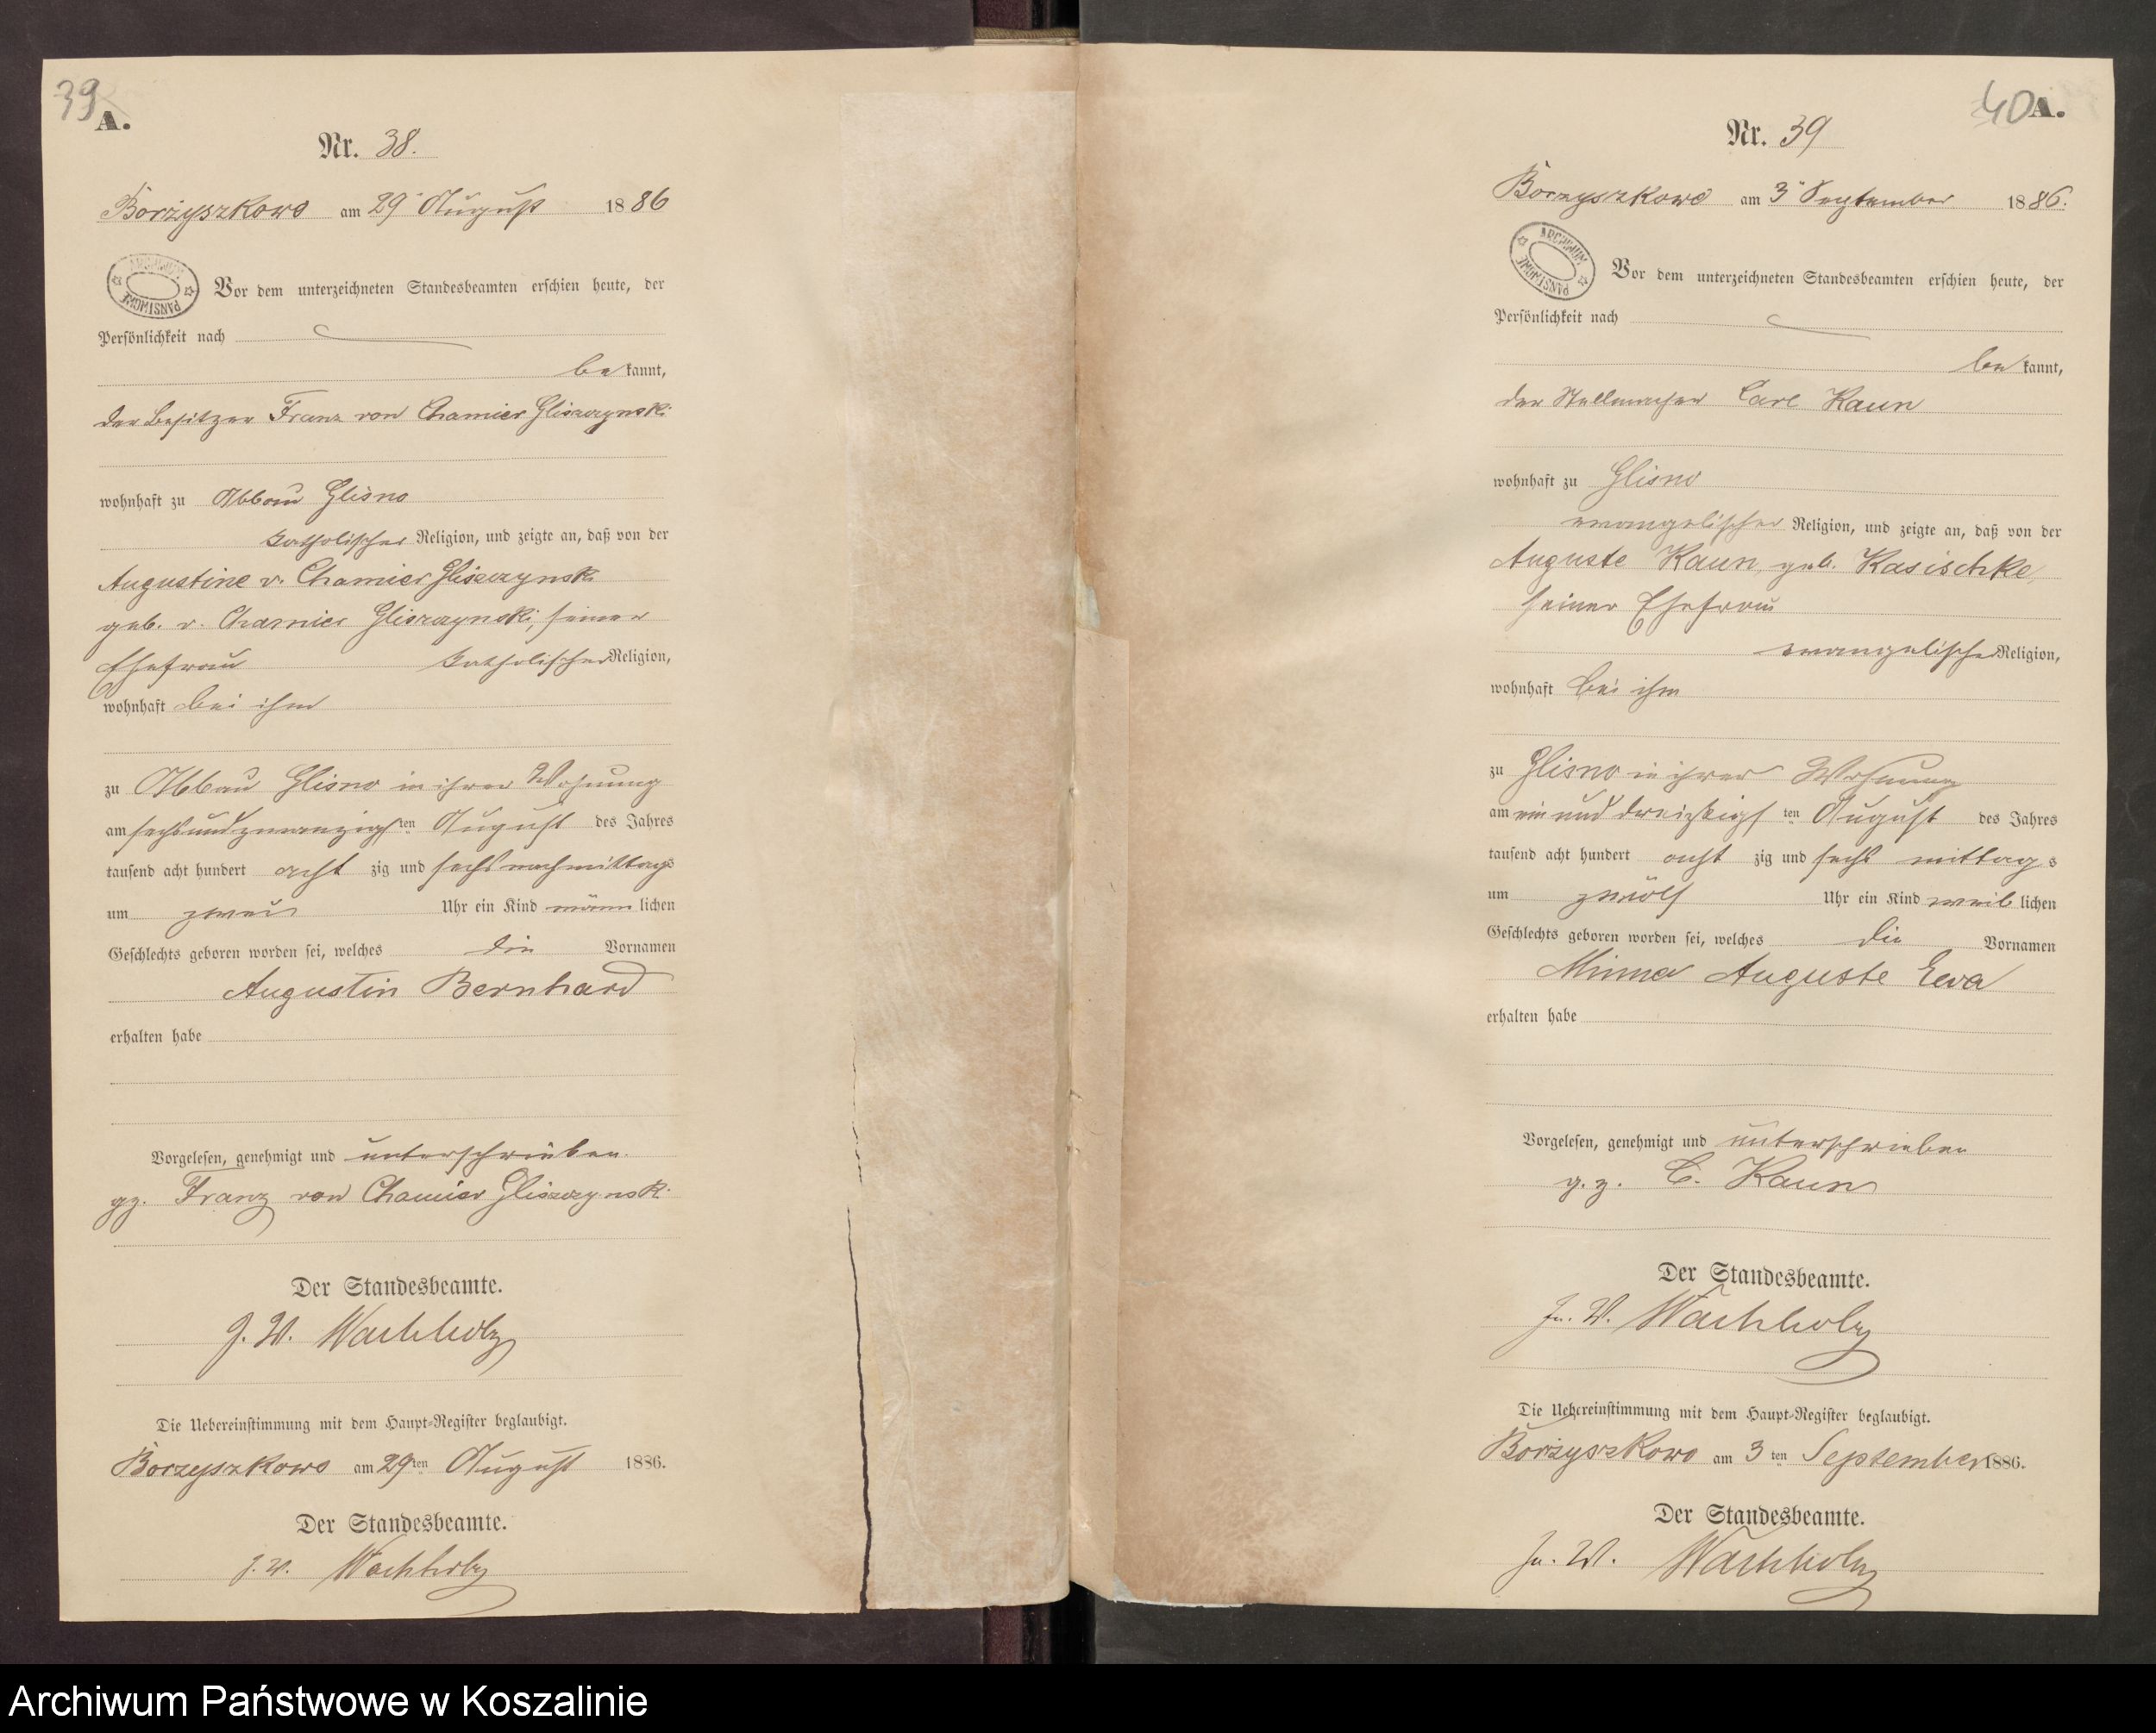 39
A.
Nr. 38.
Borzyszkowo am 29ᵗ August 1886
ARCHIWUM PAŃSTWOWE
Vor dem unterzeichneten Standesbeamten erschien heute, der
Persönlichkeit nach
be kannt,
der Besitzer Franz von Chamier Gliszczynski
wohnhaft zu Abbau Glisno
katholischer Religion, und zeigte an, daß von der
Augustine v. Chamier Gliszczynski
geb. v. Chamier Gliszczynski, seiner
Ehefrau katholischer Religion,
wohnhaft bei ihm
zu Abbau Glisno in ihrer Wohnung
am sechsundzwanzigsten August des Jahres
tausend acht hundert acht zig und sechs nachmittags
um zwei Uhr ein Kind männ lichen
Geschlechts geboren worden sei, welches die Vornamen
Augustin Bernhard
erhalten habe
Vorgelesen, genehmigt und unterschrieben.
gz. Franz von Chamier Gliszczynski
Der Standesbeamte.
J. W. Wachholz
Die Uebereinstimmung mit dem Haupt-Register beglaubigt.
Borzyszkowo am 29ten August 1886.
Der Standesbeamte.
J. W. Wachholz
40
A.
Nr. 39
Borzyszkowo am 3ᵗ September 1886.
ARCHIWUM PAŃSTWOWE
Vor dem unterzeichneten Standesbeamten erschien heute, der
Persönlichkeit nach
be kannt,
der Stellmacher Carl Kaun
wohnhaft zu Glisno
evangelischer Religion, und zeigte an, daß von der
Auguste Kaun, geb. Kasischke,
seiner Ehefrau
evangelischer Religion,
wohnhaft bei ihm
zu Glisno in ihrer Wohnung
am ein und dreizsigsten August des Jahres
tausend acht hundert acht zig und sechs mittag s
um zwölf Uhr ein Kind weib lichen
Geschlechts geboren worden sei, welches die Vornamen
Minna Auguste Ewa
erhalten habe
Vorgelesen, genehmigt und unterschrieben
g. z. C. Kaun
Der Standesbeamte.
In. W. Wachholz
Die Uebereinstimmung mit dem Haupt-Register beglaubigt.
Borzyszkowo am 3 ten September 1886.
Der Standesbeamte.
In. W. Wachholz
Archiwum Państwowe w Koszalinie